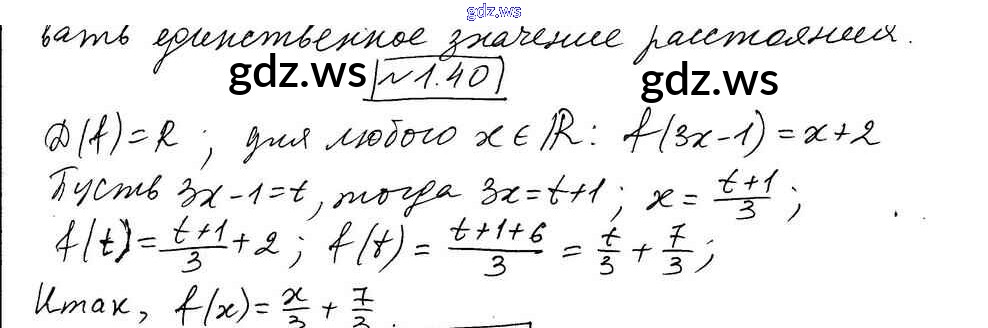 gdz.ws
вать единственное значение расстояния.
gdz.ws №1.40 gdz.ws
D(f)=R; для любого x∈R: f(3x-1)=x+2
Пусть 3x-1=t, тогда 3x=t+1; x=\frac{t+1}{3};
f(t)=\frac{t+1}{3}+2; f(t)=\frac{t+1+6}{3}=\frac{t}{3}+\frac{7}{3};
Итак, f(x)=\frac{x}{3}+\frac{7}{3}.